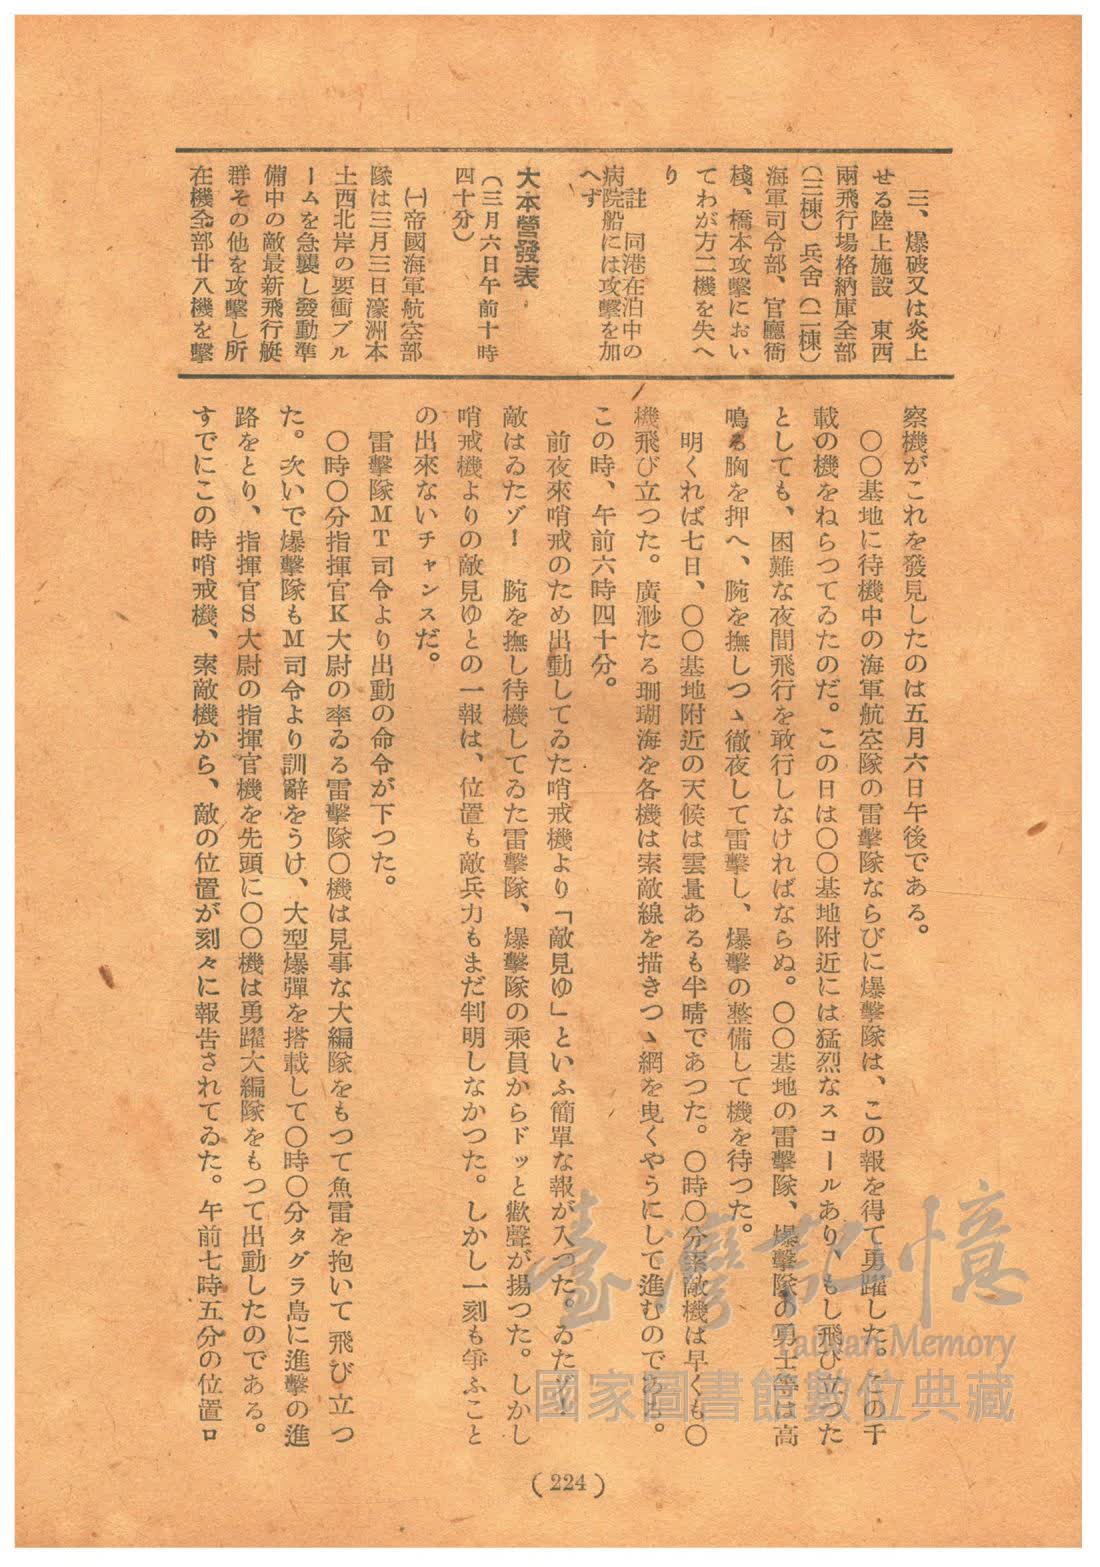 三、爆破又は炎上
せる陸上施設　東西
兩飛行場格納庫全部
（三棟）兵舍（二棟）
海軍司令部、官廳衙
棧、橋本攻擊におい
てわが方二機を失へ
り
註　同港在泊中の
病院船には攻擊を加
へず
大本營發表
（三月六日午前十時
四十分）
㈠帝國海軍航空部
隊は三月三日濠洲本
土西北岸の要衝ブル
ームを急襲し發動準
備中の敵最新飛行艇
群その他を攻擊し所
在機全部廿八機を擊
察機がこれを發見したのは五月六日午後である。
〇〇基地に待機中の海軍航空隊の雷擊隊ならびに爆擊隊は、この報を得て勇躍した。この千
載の機をねらつてゐたのだ。この日は〇〇基地附近には猛烈なスコールあり、もし飛び立つた
としても、困難な夜間飛行を敢行しなければならぬ。〇〇基地の雷擊隊、爆擊隊の勇士等は高
鳴る胸を押へ、腕を撫しつゝ徹夜して雷擊し、爆擊の整備して機を待つた。
明くれば七日、〇〇基地附近の天候は雲量あるも半晴であつた。〇時〇分索敵機は早くも〇
機飛び立つた。廣渺たる珊瑚海を各機は索敵線を描きつゝ網を曳くやうにして進むのである。
この時、午前六時四十分。
前夜來哨戒のため出動してゐた哨戒機より「敵見ゆ」といふ簡單な報が入つた。ゐたゾー
敵はゐたゾー　腕を撫し待機してゐた雷擊隊、爆擊隊の乘員からドッと歡聲が揚つた。しかし
哨戒機よりの敵見ゆとの一報は、位置も敵兵力もまだ判明しなかつた。しかし一刻も爭ふこと
の出來ないチャンスだ。
雷擊隊MT司令より出動の命令が下つた。
〇時〇分指揮官K大尉の率ゐる雷擊隊〇機は見事な大編隊をもつて魚雷を抱いて飛び立つ
た。次いで爆擊隊もM司令より訓辭をうけ、大型爆彈を搭載して〇時〇分タグラ島に進擊の進
路をとり、指揮官S大尉の指揮官機を先頭に〇〇機は勇躍大編隊をもつて出動したのである。
すでにこの時哨戒機、索敵機から、敵の位置が刻々に報吿されてゐた。午前七時五分の位置ロ
(224)
臺灣記憶
Taiwan Memory
國家圖書館數位典藏